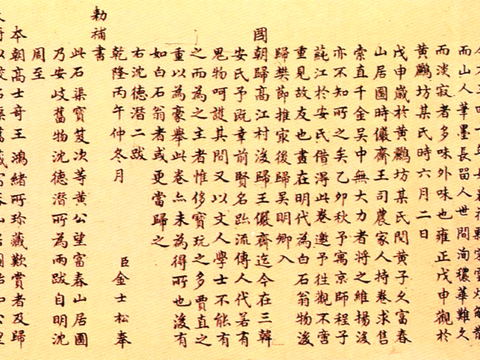 而山人筆墨長留人世間洵稱華難久
而淡寂者多味外味也雍正戊申觀於
黃鸝坊某氏時六月二日
戊申歲於黃鸝坊某氏閱黃子久富春
山居圖時儼齋王司農家人持卷求售
索直千金吳中無大力者將之維揚後
亦不知所之矣乙卯秋予寓京師程子
蓴江於安氏借得此卷邀予往觀不啻
重見故友也畫在明代為白石翁物後
歸樊節推家後歸吳明卿入
國朝歸高江村後歸王儼齋迄今在三韓
安氏予既幸前賢名跡流傳人代若有
鬼物呵護其間又以文人學士不能有
之而為之主者惟侈寶玩之多賈直之
重以為豪舉此卷亦未為得所也後有
如白石翁者或更當歸之
右沈德潛二跋
乾隆丙午仲冬月 臣金士松奉
勅補書
此石渠寶笈次等黃公望富春山居圖
乃安岐舊物沈德潛所為兩跋自明沈
周至
本朝高士奇王鴻緒所珍藏歎賞者及歸